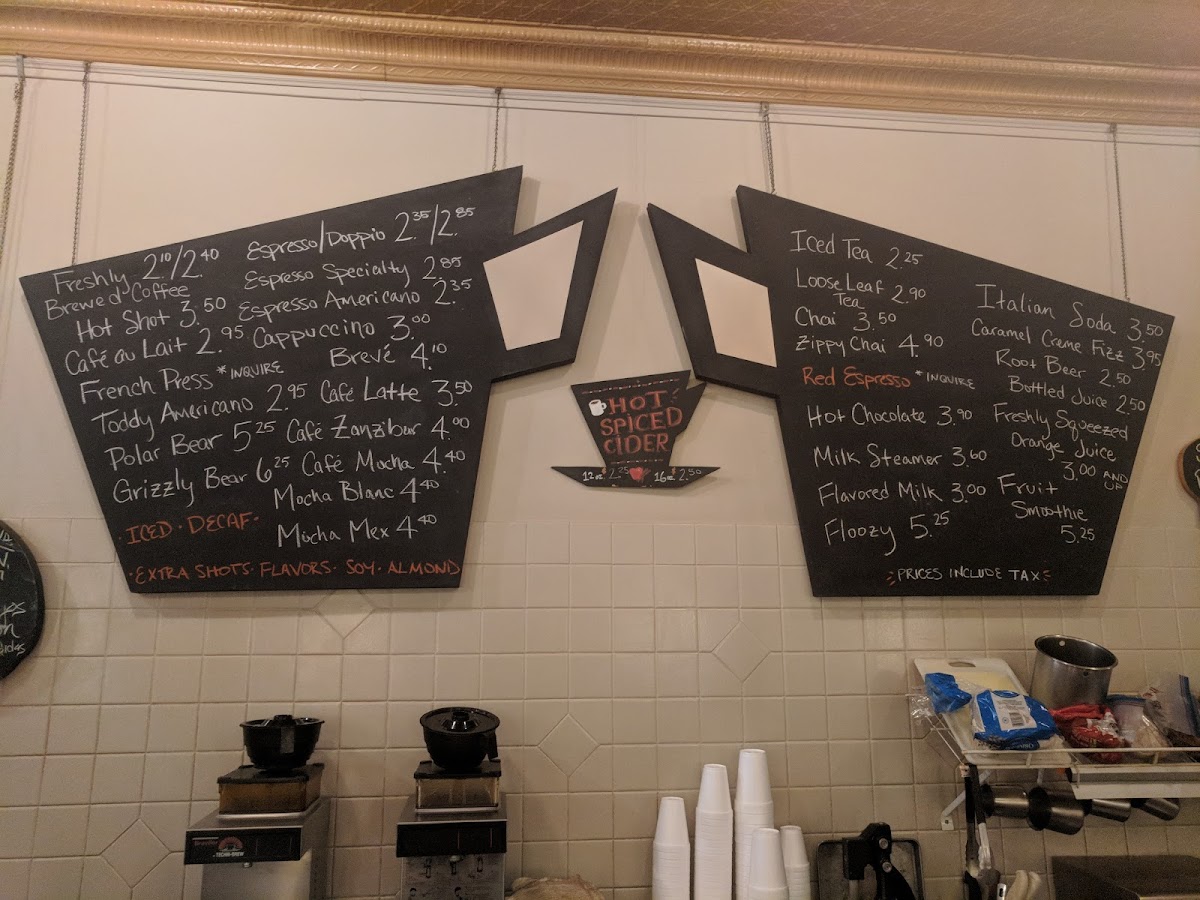 Freshly 2.10/2.40
Brewed Coffee
Hot Shot 3.50
Café au Lait 2.95
French Press *INQUIRE
Toddy Americano 2.95
Polar Bear 5.25
Grizzly Bear 6.25
·ICED·DECAF·
Espresso/Doppio 2.35/2.85
Espresso Specialty 2.85
Espresso Americano 2.35
Cappuccino 3.00
Brevé 4.10
Café Latte 3.50
Café Zanzibar 4.00
Café Mocha 4.40
Mocha Blanc 4.40
Mocha Mex 4.40
·EXTRA SHOTS·FLAVORS·SOY·ALMOND
HOT
SPICED
CIDER
12oz 2.25 16oz 2.50
Iced Tea 2.25
Loose Leaf 2.90
Tea
Chai 3.50
Zippy Chai 4.90
Red Espresso *INQUIRE
Hot Chocolate 3.90
Milk Steamer 3.60
Flavored Milk 3.00
Floozy 5.25
Italian Soda 3.50
Caramel Creme Fizz 3.95
Root Beer 2.50
Bottled Juice 2.50
Freshly Squeezed
Orange Juice
3.00 AND UP
Fruit
Smoothie
5.25
PRICES INCLUDE TAX